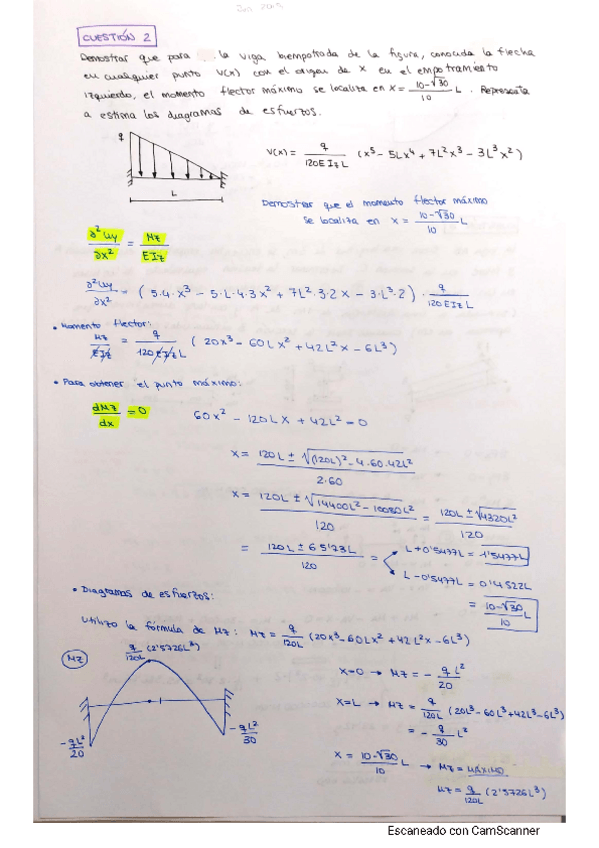 Jun 2019
CUESTIÓN 2
Demostrar que para la viga biempotrada de la figura, conocida la flecha
en cualquier punto v(x) con el origen de x en el empotramiento
izquierdo, el momento flector máximo se localiza en x = (10-√30)/10 L. Representa
a estima los diagramas de esfuerzos.
q
V(x) = q/(120EIzL) (x⁵ - 5Lx⁴ + 7L²x³ - 3L³x²)
L
Demostrar que el momento flector máximo
se localiza en x = (10-√30)/10 L
∂²Uy/∂x² = Mz/EIz
∂²Uy/∂x² = (5·4·x³ - 5·L·4·3x² + 7L²·3·2x - 3·L³·2) · q/(120EIzL)
• Momento flector:
Mz/EIz = q/(120EIzL) (20x³ - 60Lx² + 42L²x - 6L³)
• Para obtener el punto máximo:
dMz/dx = 0 60x² - 120Lx + 42L² = 0
x = (120L ± √((120L)² - 4·60·42L²))/(2·60)
x = (120L ± √(14400L² - 10080L²))/120 = (120L ± √(4320L²))/120
= (120L ± 65'73L)/120 = L+0'5477L = 1'5477L
L-0'5477L = 0'4522L
= (10-√30)/10 L
• Diagramas de esfuerzos:
Utilizo la fórmula de Mz: Mz = q/120L (20x³ - 60Lx² + 42L²x - 6L³)
q/120L (2'5726L³)
Mz
x=0 → Mz = - qL²/20
x=L → Mz = q/120L (20L³ - 60L³ + 42L³ - 6L³)
= - q/30 L²
-qL²/20
-qL²/30
x = (10-√30)/10 L → Mz = MÁXIMO
Mz = q/120L (2'5726L³)
Escaneado con CamScanner